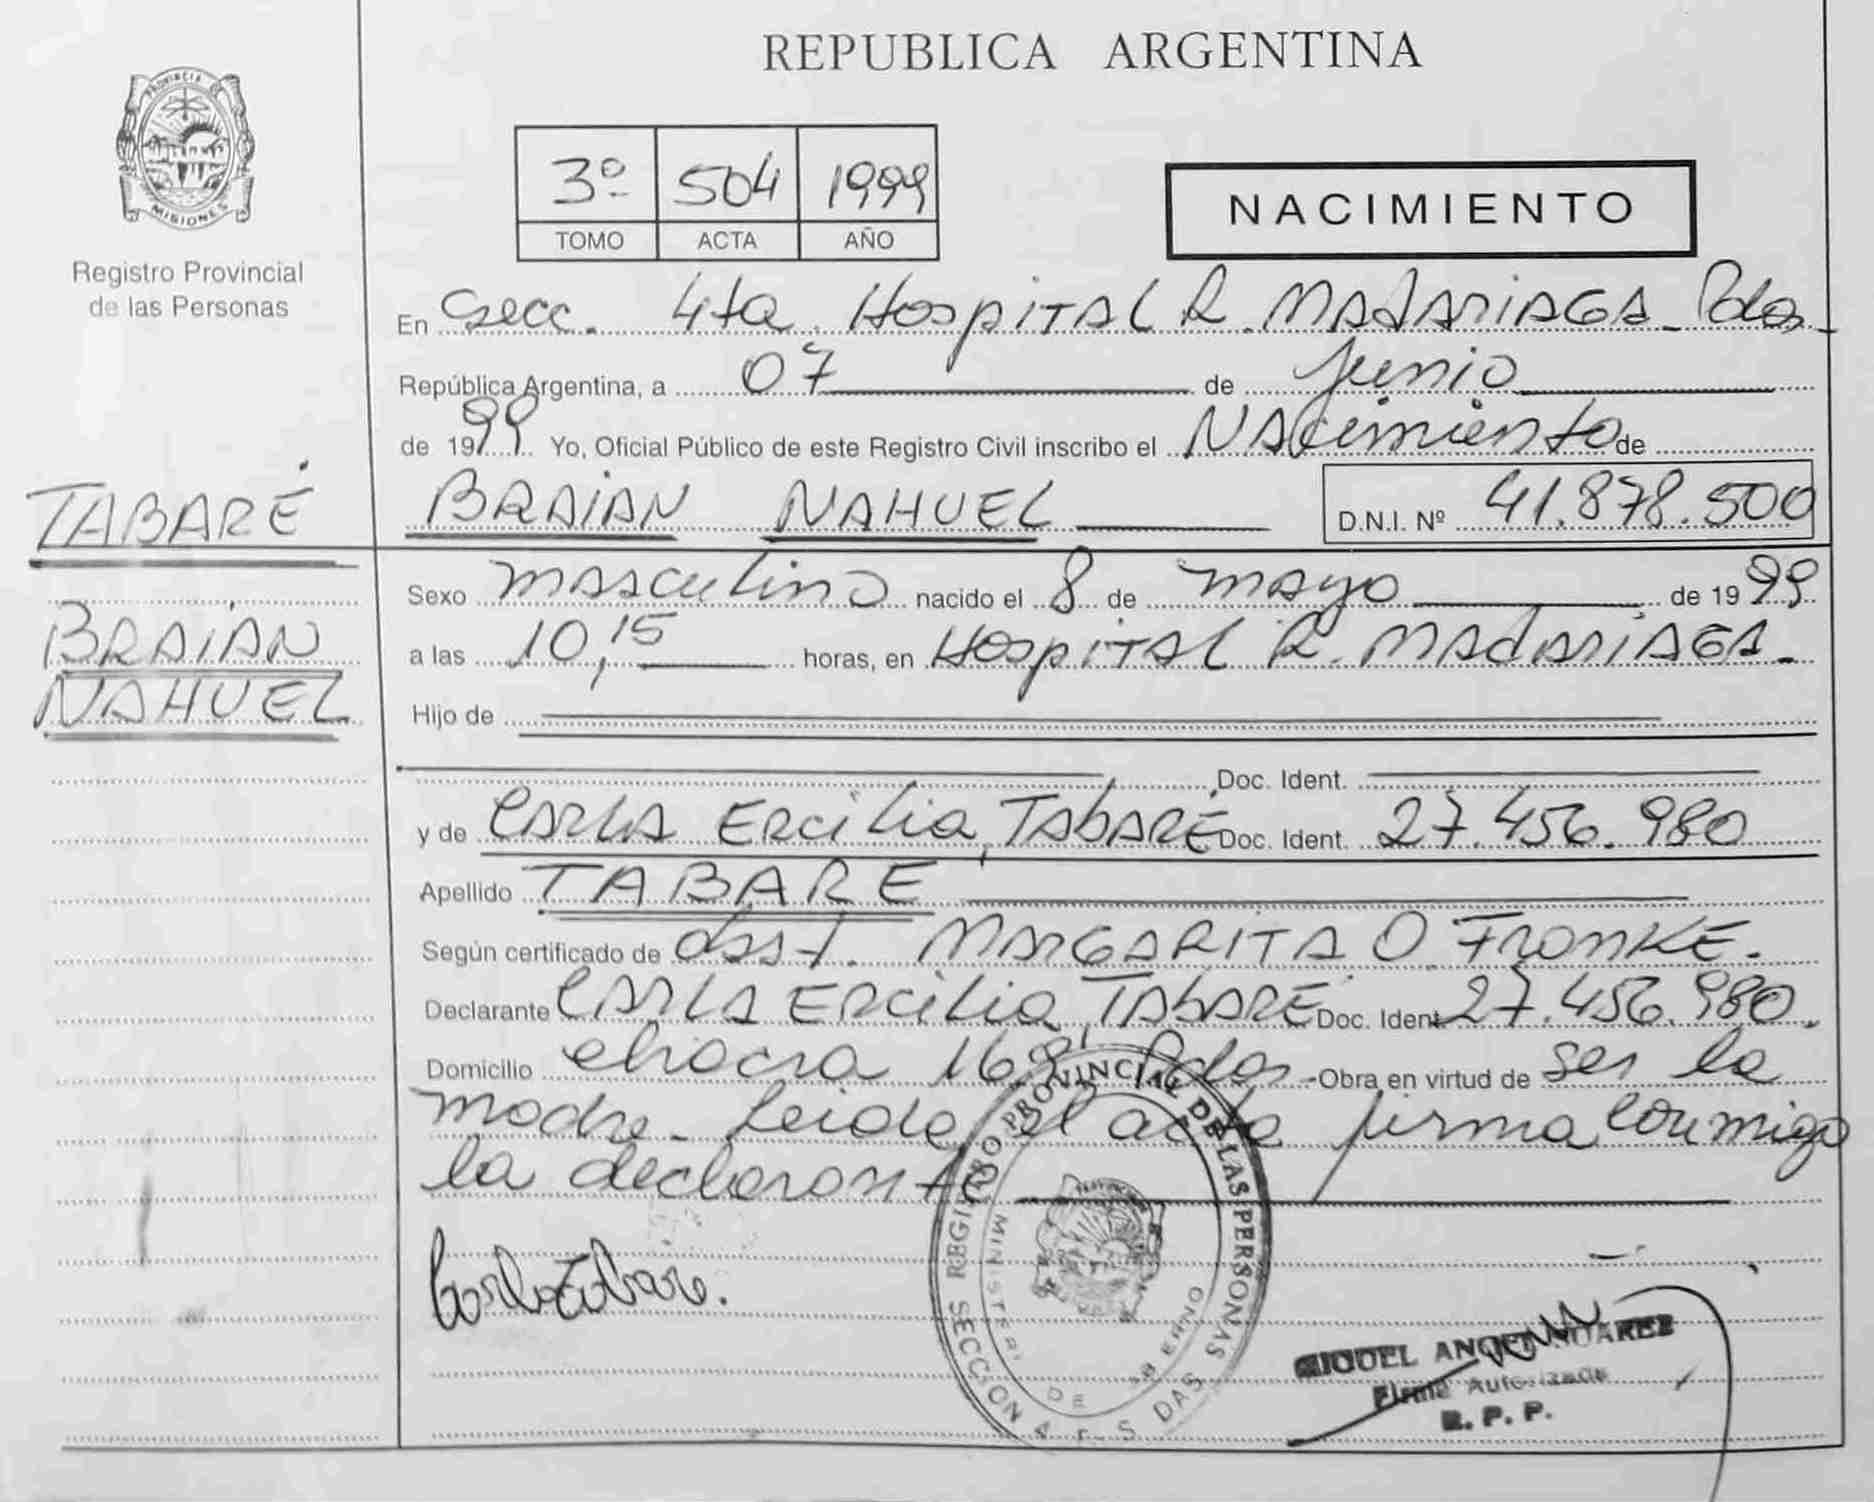 REPUBLICA ARGENTINA
PROVINCIA DE
MISIONES
Registro Provincial
de las Personas
3º 504 1999
TOMO ACTA AÑO
NACIMIENTO
En Secc. 4ta. Hospital R. MADARIAGA - Pdas -
República Argentina, a 07 de junio
de 1999. Yo, Oficial Público de este Registro Civil inscribo el NAcimiento de
BRAIAN NAHUEL D.N.I. Nº 41.878.500
TABARÉ
BRAIAN
NAHUEL
Sexo masculino nacido el 8 de mayo de 1999
a las 10,15 horas, en Hospital R. MADARIAGA -
Hijo de
Doc. Ident.
y de CARLA ERCiLia, TABARÉ Doc. Ident. 27.456.980
Apellido TABARE
Según certificado de Obst. MARGARITA O. FRONKE.
Declarante CARLA ERCiLia, TABARE Doc. Ident 27.456.980.
Domicilio chacra Pdas - Obra en virtud de ser la
madre - Leida el acta firma conmigo
la declarante
Carla Tabare.
REGISTRO PROVINCIAL DE LAS PERSONAS
SECCION
MIGUEL ANGEL SUAREZ
Firma Autorizada
R. P. P.